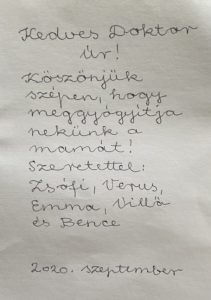 Kedves Doktor
Úr!
Köszönjük
szépen, hogy
meggyógyítja
nekünk a
mamát!
Szeretettel:
Zsófi, Verus,
Emma, Villő
és Bence
2020. szeptember